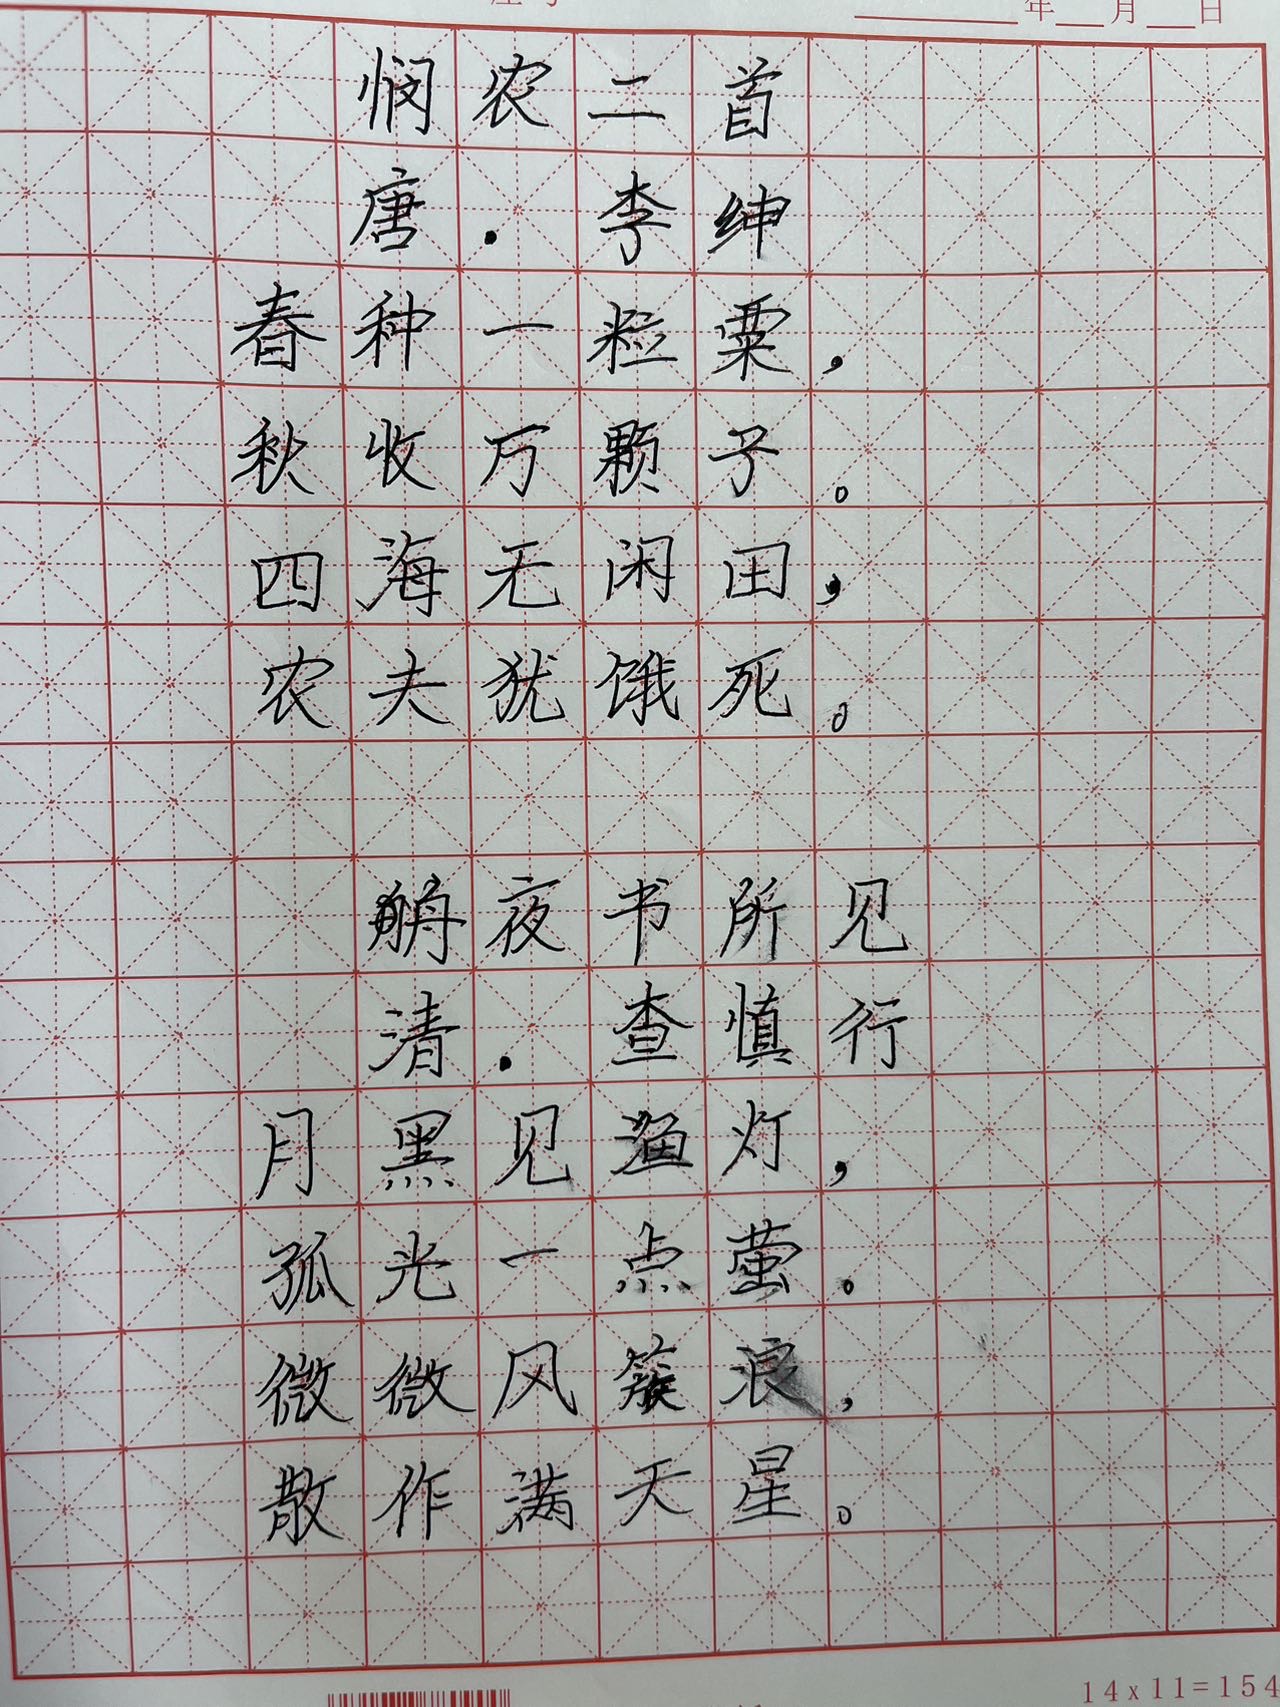 年 月 日
悯农二首
唐.李绅
春种一粒粟,
秋收万颗子。
四海无闲田,
农夫犹饿死。
舟夜书所见
清.查慎行
月黑见渔灯,
孤光一点萤。
微微风簇浪,
散作满天星。
14x11=154